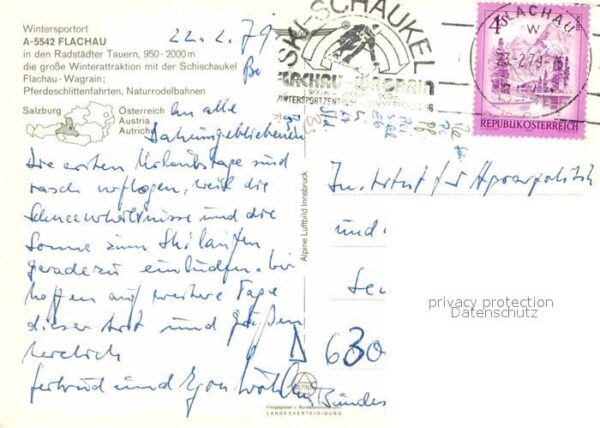 Wintersportort
A-5542 FLACHAU
in den Radstädter Tauern, 950-2000 m
die große Winterattraktion mit der Schischaukel
Flachau-Wagrain;
Pferdeschlittenfahrten, Naturrodelbahnen
Salzburg
Österreich
Austria
Autriche
22.2.79
An alle
Daheimgebliebenen
Die ersten Urlaubstage sind
rasch verflogen, weil die
Schneeverhältnisse und die
Sonne zum Skilaufen
geradezu einluden. Wir
hoffen auf weitere Tage
dieser Art und grüßen
herzlich
Gertrud und Egon
Alpine Luftbild Innsbruck
SKI-SCHAUKEL
FLACHAU-WAGRAIN
WINTERSPORTZENTRUM
FLACHAU
4
REPUBLIK ÖSTERREICH
Institut für Agrarpolitik
und
privacy protection
Datenschutz
D 630
Bundes
Freigegeben v. Bundesministerium f.
LANDESVERTEIDIGUNG